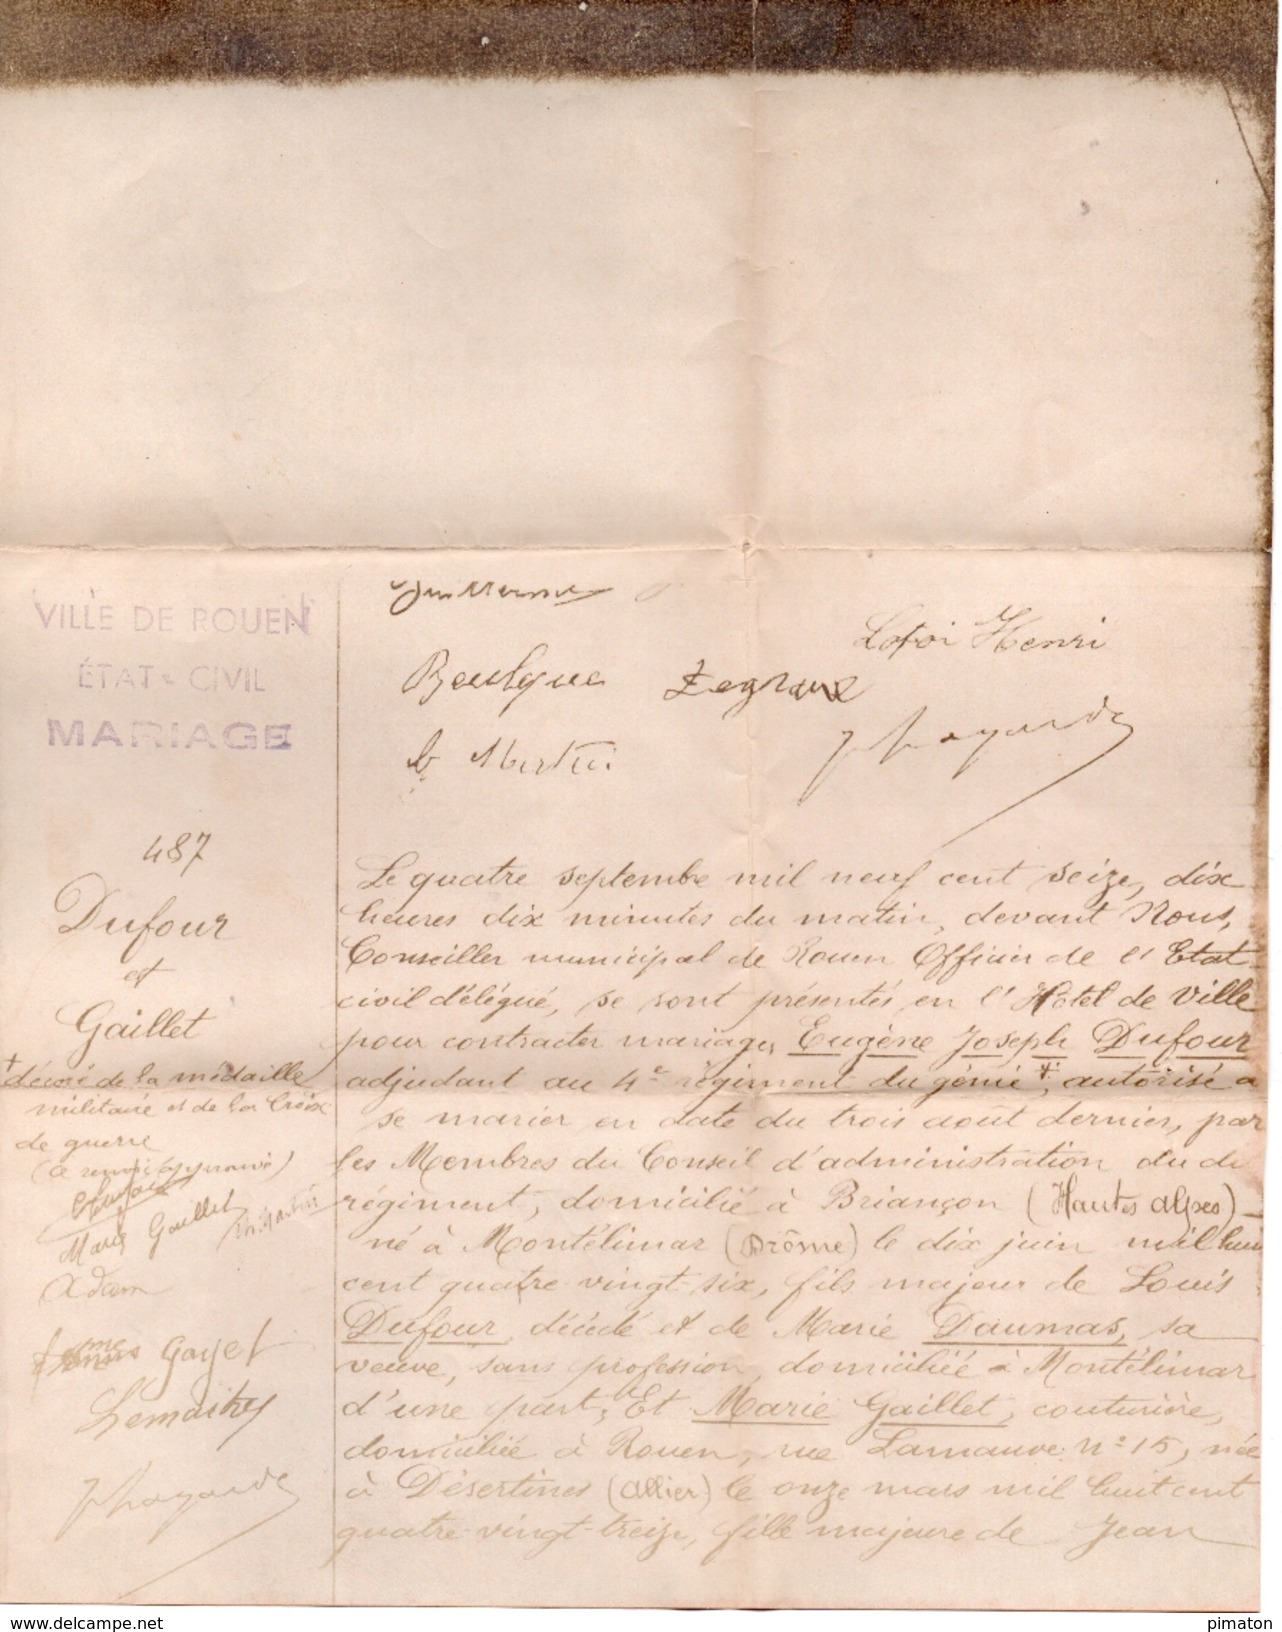 VILLE DE ROUEN
ÉTAT-CIVIL
MARIAGE
Lofoi Henri
Legrand
487
Dufour
et
Gaillet
+ décoré de la médaille
militaire et de la Croix
de guerre
(Ce renvoi approuvé)
Marie Gaillet
Adam
Gayet
Lemaitre
Le quatre septembre mil neuf cent seize, dix
heures dix minutes du matin, devant Nous,
Conseiller municipal de Rouen Officier de l'Etat
civil délégué, se sont présentés en l'Hotel de Ville
pour contracter mariage, Eugène Joseph Dufour
adjudant au 4e régiment du génie +, autorisé a
se marier en date du trois aout dernier, par
les Membres du Conseil d'administration du dt
régiment, domicilié à Briançon (Hautes Alpes)
né à Montélimar (Drôme) le dix juin mil huit
cent quatre-vingt-six, fils majeur de Louis
Dufour, décédé et de Marie Daumas, sa
veuve, sans profession, domiciliée à Montélimar
d'une part; Et Marie Gaillet, couturière,
domiciliée à Rouen, rue Lamauve n° 15, née
à Désertines (Allier) le onze mars mil huit cent
quatre-vingt-treize, fille majeure de Jean
www.delcampe.net
pimaton